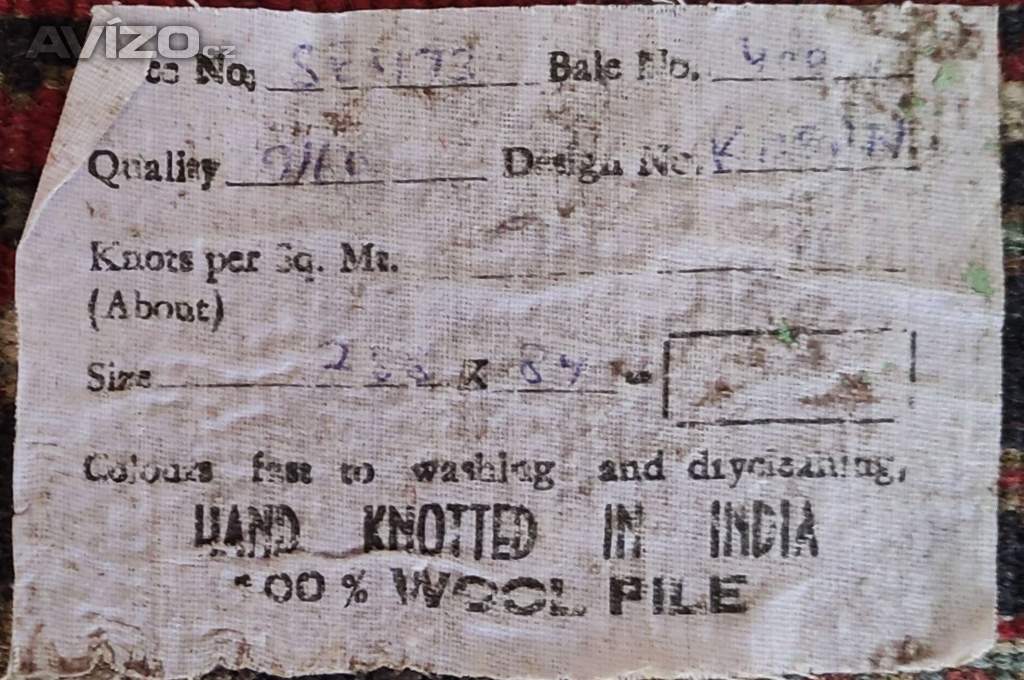 AVÍZO.cz
ce No. Bale No.
Quality 9/60 Design No.
Knots per Sq. Mt.
(About)
Size X 84 =
Colours fast to washing and drycleaning.
HAND KNOTTED IN INDIA
100 % WOOL PILE